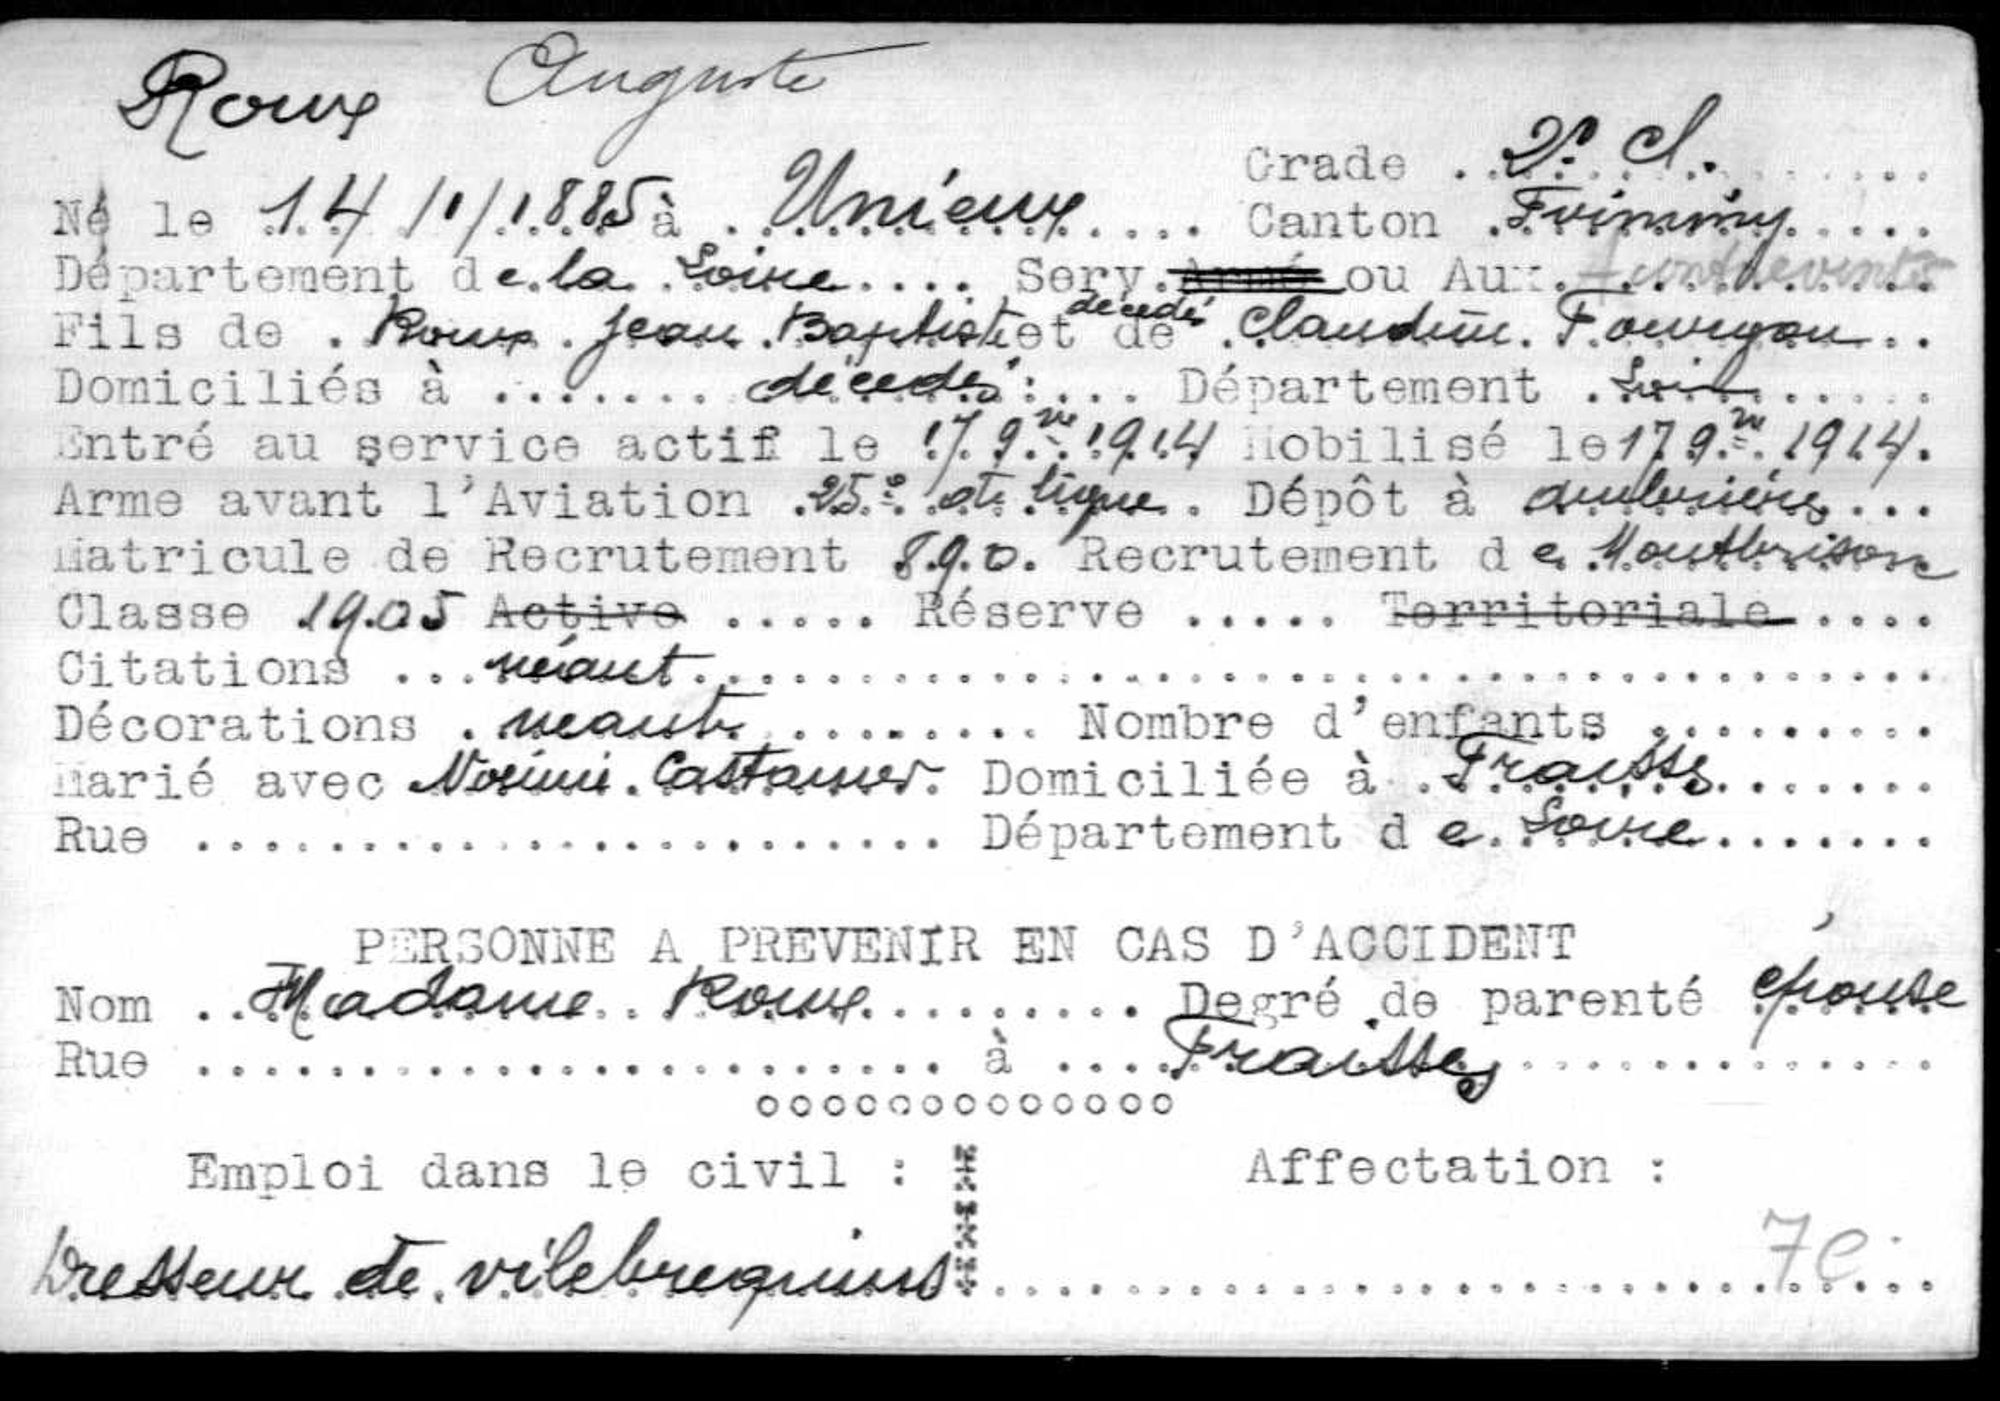 Roux Auguste
Grade 2e. cl.
Né le 14/1/1885 à Unieux Canton Firminy
Département de la Loire Serv. Armé ou Aux.
Fils de Roux Jean Baptiste décédé et de Claudine Fourgon
Domiciliés à décédés Département Loire
Entré au service actif le 17 9re 1914 Mobilisé le 17 9re 1914.
Arme avant l'Aviation 25e de ligne Dépôt à
Matricule de Recrutement 890. Recrutement de Montbrison
Classe 1905 Active ..... Réserve ..... Territoriale ....
Citations ... néant
Décorations . neant ........ Nombre d'enfants .........
Marié avec Noémie Domiciliée à Fraisses
Rue ....................... Département de Loire
PERSONNE A PREVENIR EN CAS D'ACCIDENT
Nom .. Madame Roux ......... Degré de parenté épouse
Rue ....................... à .... Fraisses
ooooooooooooo
Emploi dans le civil : Affectation :
Dresseur de vilebrequins 7e